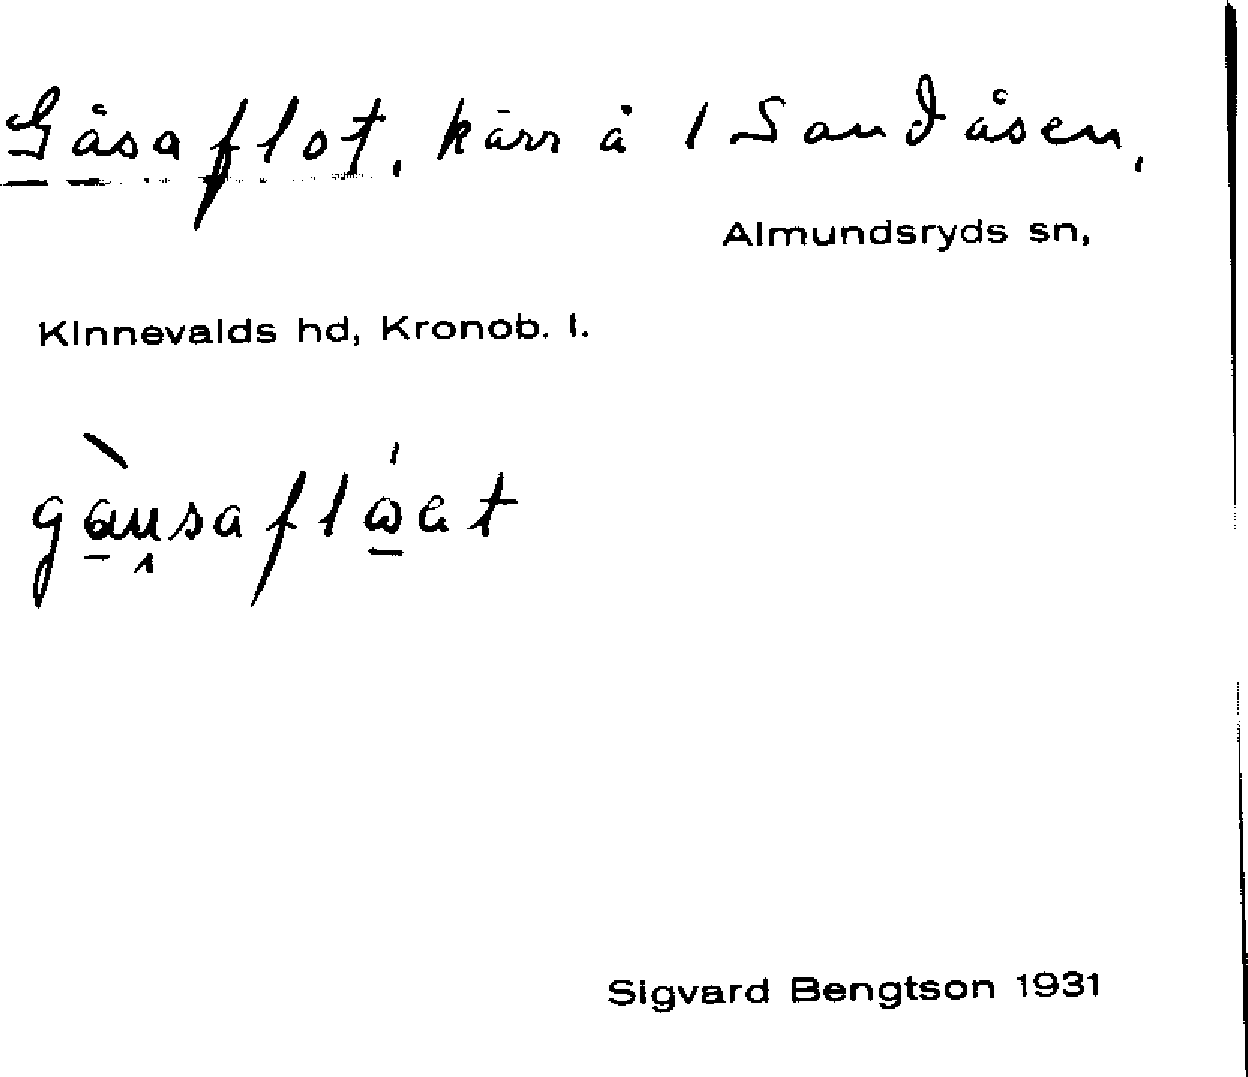 Gåsaflot, kärr å 1 Sandåsen,
Almundsryds sn,
Kinnevalds hd, Kronob. l.
Sigvard Bengtson 1931